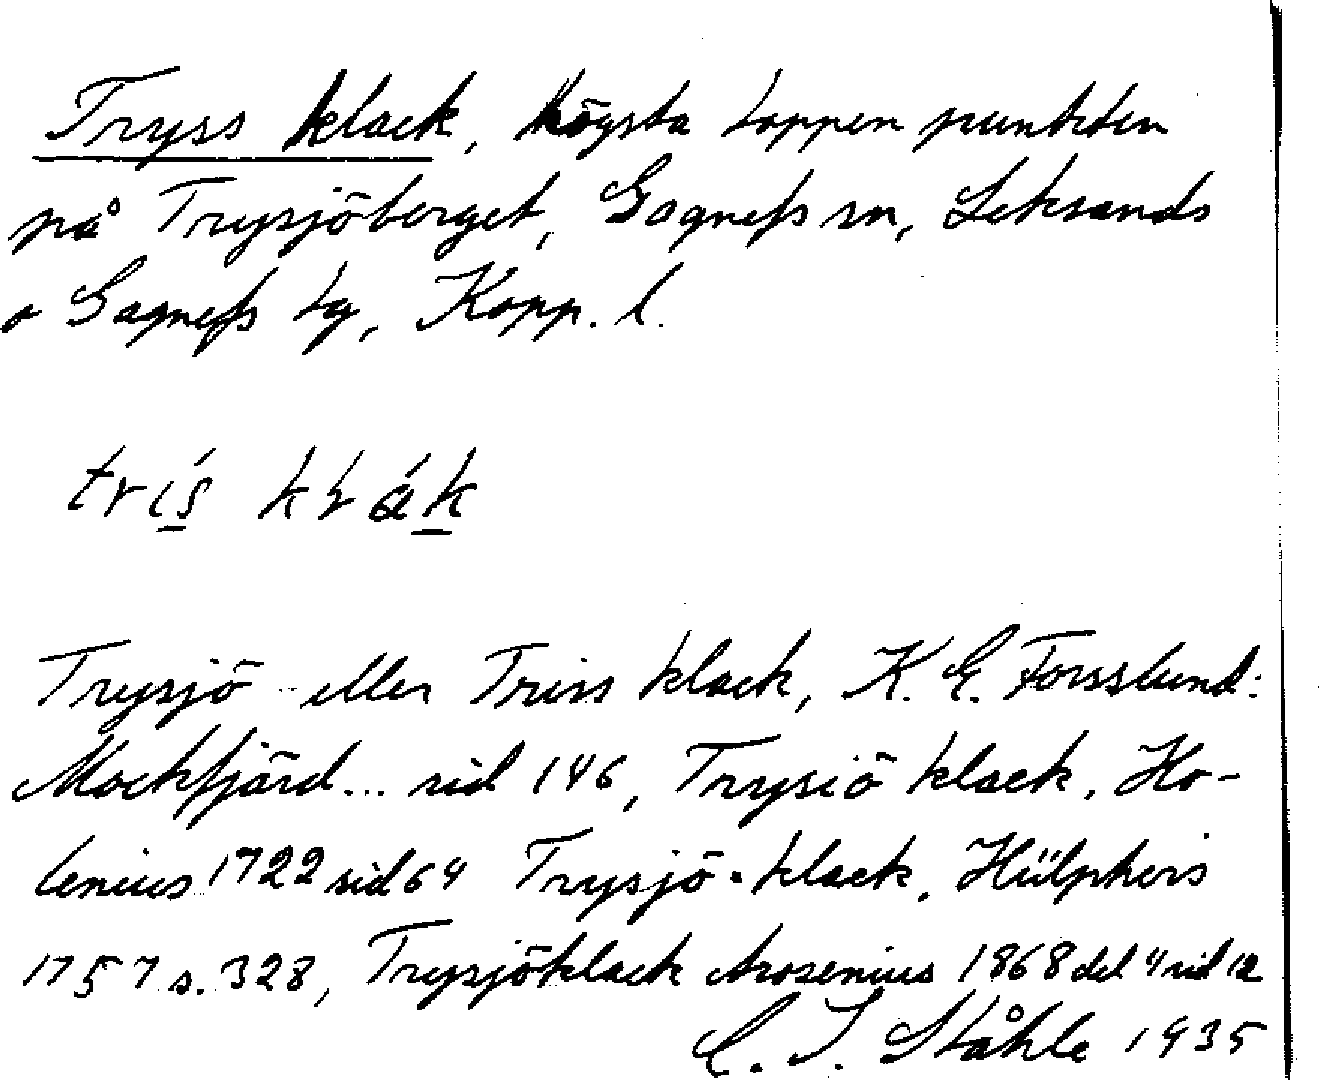 Tryss klack, högsta toppen punkten
på Trysjöberget, Gagnefs sn, Leksands
o Gagnefs tg, Kopp. l.
trís klák
Trysjö- eller Triss klack, K. E. Forsslund:
Mockfjärd... sid 146, Trysiö klack. Ho-
lenius 1722 sid 64 Trysjö-klack. Hülphers
1757 s. 328, Trysjöklack Arosenius 1868 del 4 sid 12
C. I. Ståhle 1935